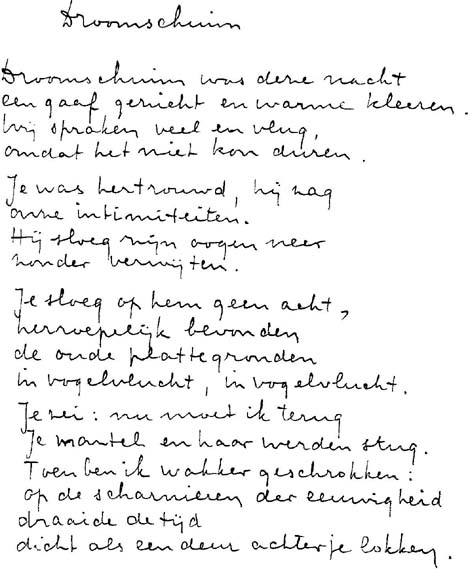 Droomschuim
Droomschuim was deze nacht
een gaaf gezicht en warme kleeren.
Wij spraken veel en vlug,
omdat het niet kon duren.
Je was hertrouwd, hij zag
onze intimiteiten.
Hij sloeg mijn oogen neer
zonder verwijten.
Je sloeg op hem geen acht,
herroepelijk bevonden
de oude plattegronden
in vogelvlucht, in vogelvlucht.
Je zei: nu moet ik terug
Je mantel en haar werden stug.
Toen ben ik wakker geschrokken:
op de scharnieren der eeuwigheid
draaide de tijd
dicht als een deur achter je lokken.